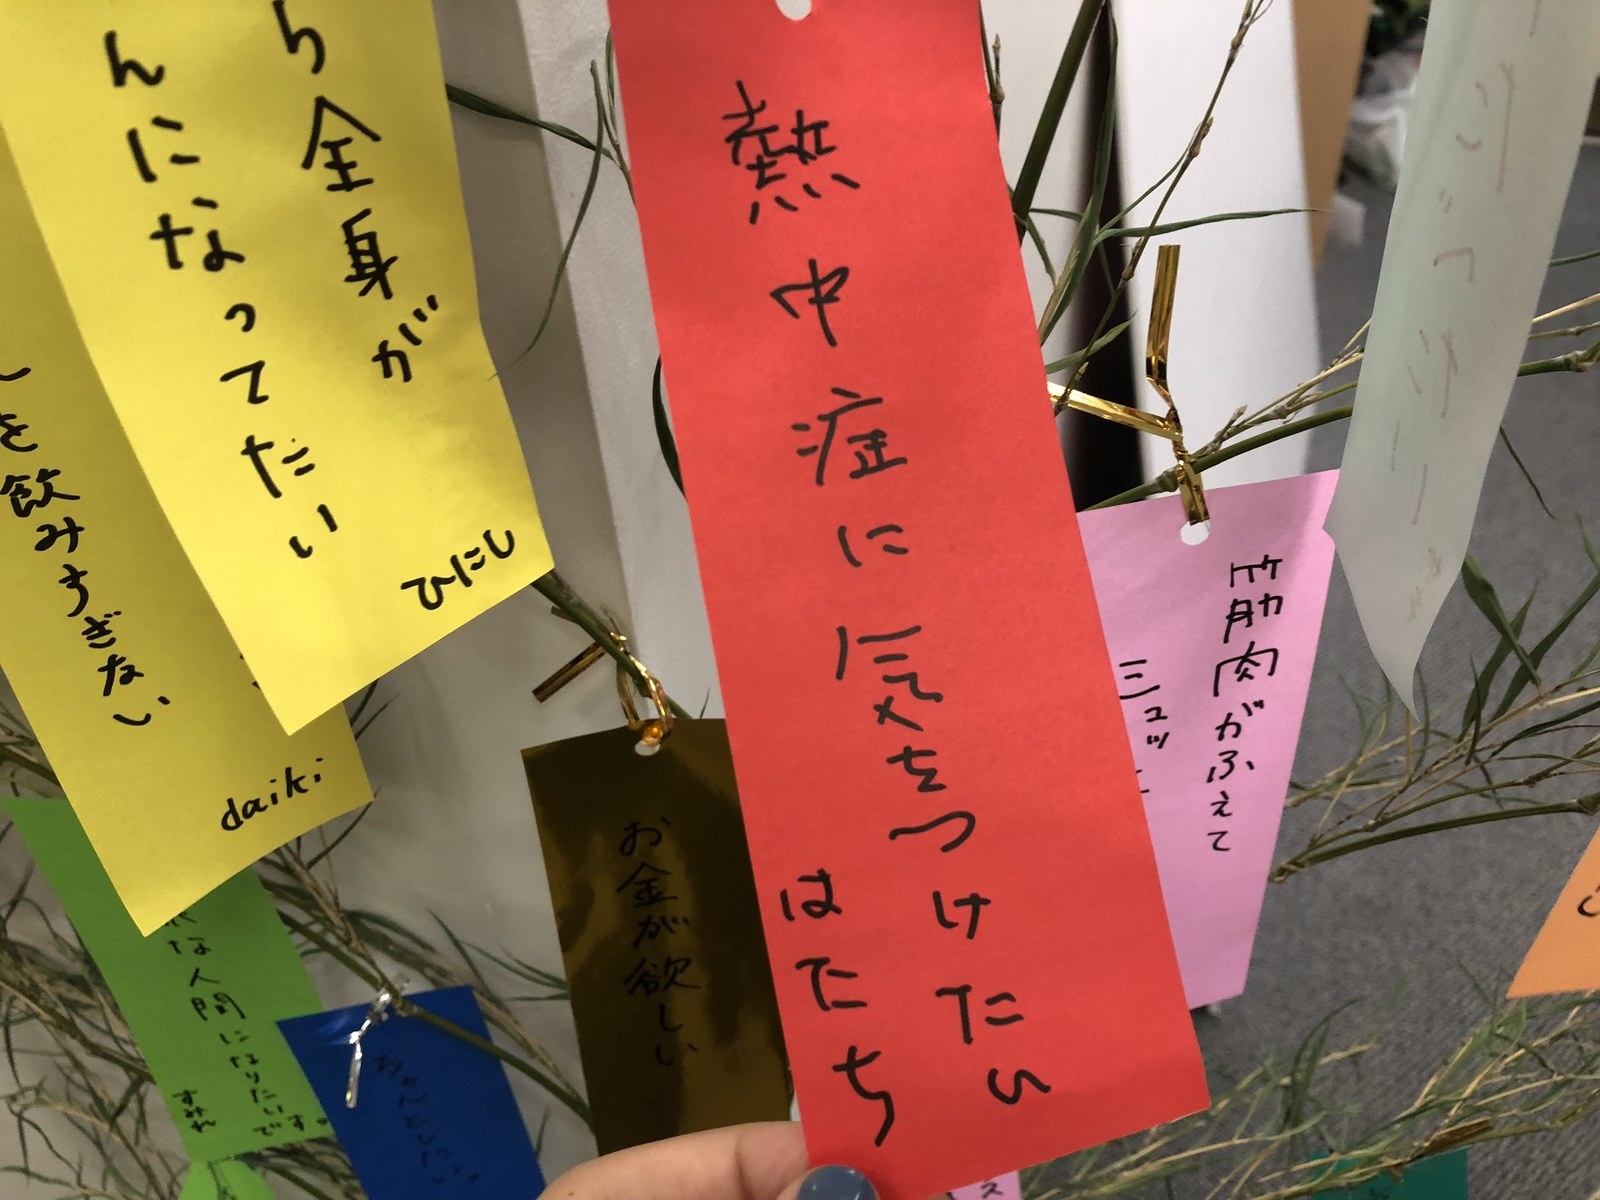 熱中症に気をつけたい
はたち
ら全身が
んになってたい
ひにし
を飲みすぎない
daiki
な人間になりたいです。
すみれ
ちゃんとしたい
お金が欲しい
筋肉がふえて
ミュッ
ス